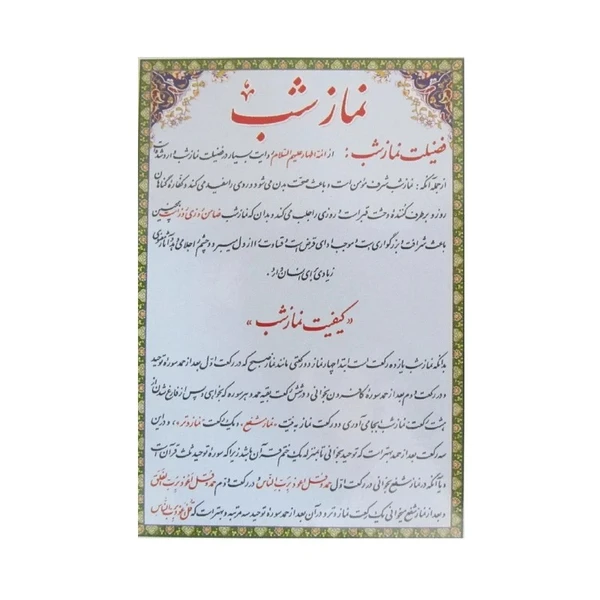 نماز شب
فضیلت نماز شب : از ائمه اطهار علیهم السلام روایات بسیار در فضیلت نماز شب وارد شده
از جمله آنکه : نماز شب شرف مؤمن است و باعث صحت بدن می شود و روی را سفید می کند و کفاره گناهان
روز و برطرف کننده وحشت قبر است و روزی را جلب می کند و بدان که نماز شب ضامن روزی روز است همچنین
باعث شرافت و بزرگواری است موجب ادای قرض است و قساوت را از دل می برد و چشم را جلا می دهد و آثار معنوی
زیادی برای انسان دارد .
« کیفیت نماز شب »
بدانکه نماز شب یازده رکعت است ابتدا چهار نماز دو رکعتی مانند نماز صبح که در رکعت اول بعد از حمد سوره توحید
و در رکعت دوم بعد از حمد سوره کافرون بخوانی و در شش رکعت بقیه حمد و هر سوره که بخواهی و پس از فارغ شدن از
هشت رکعت نماز شب بجا می آوری دو رکعت نماز به نیت « نماز شفع » و یک رکعت « نماز وتر » و در این
سه رکعت بعد از حمد بهتر است که توحید بخوانی تا بمنزله یک ختم قرآن باشد زیرا که سوره توحید ثلث قرآن است
و یا آنکه در نماز شفع بخوانی در رکعت اول حمد و قل اعوذ برب الناس و در رکعت دوم حمد و قل اعوذ برب الفلق
و بعد از نماز شفع بخوانی یک رکعت نماز وتر و در آن بعد از حمد سوره توحید سه مرتبه و بهتر است که قل اعوذ برب الناس